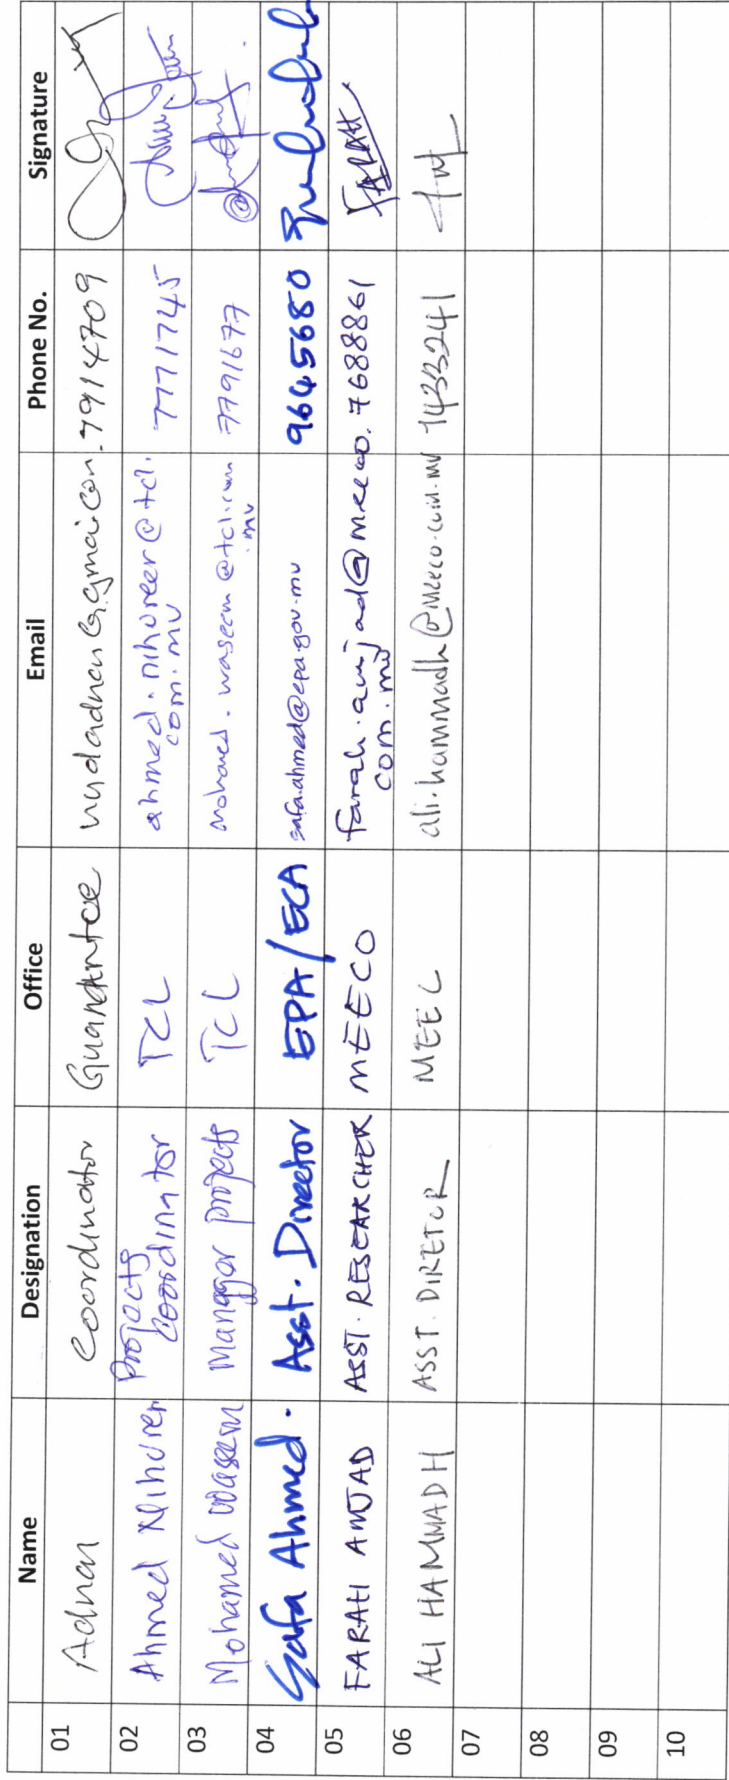 Name Designation Office Email Phone No. Signature
01 Adnan Coordinator 7914709
02 Ahmed Nihureer Projects Coordinator TCL ahmed.nihureer@tcl.com.mv 7771745
03 Mohamed Waseem Manager projects TCL mohamed.waseem@tcl.com.mv 7791677
04 Safa Ahmed. Asst. Director EPA/ECA safa.ahmed@epa.gov.mv 9645680
05 FARAH AMJAD ASST. RESEARCHER MEECO farah.amjad@meeco.com.mv 7688861 FARAH
06 ALI HAMMADH ASST. DIRETOR MEEC ali.hammadh@meeco.com.mv 7433241
07
08
09
10